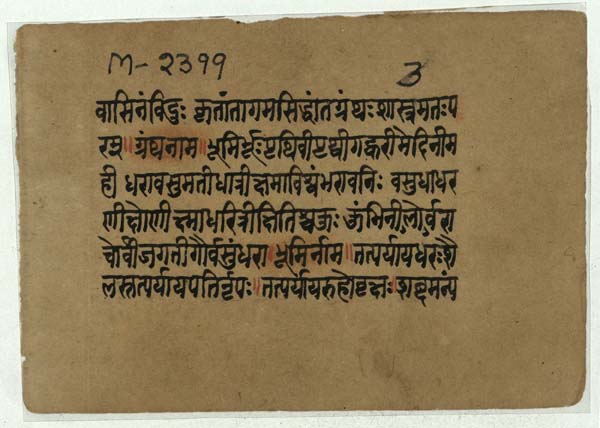 M-2399
3
वासिनंविदुः कृतांतागमसिद्धांतग्रंथः शास्त्रमतःप
रम् ॥ ग्रंथनाम ॥ भूमिर्भूः पृथिवी पृथ्वी गह्वरी मेदिनी म
ही धरा वसुमती धात्री क्ष्मा विश्वंभरावनिः वसुधा धर
णी क्षोणी क्ष्मा धरित्री क्षितिश्च कुः कुंभिनीलोर्वरा
चोर्वी जगती गौर्वसुंधरा ॥ भूमिर्नाम ॥ तत्पर्यायधरः शै
लस्तत्पर्यायपतिर्नृपः ॥ तत्पर्यायरुहो वृक्षः